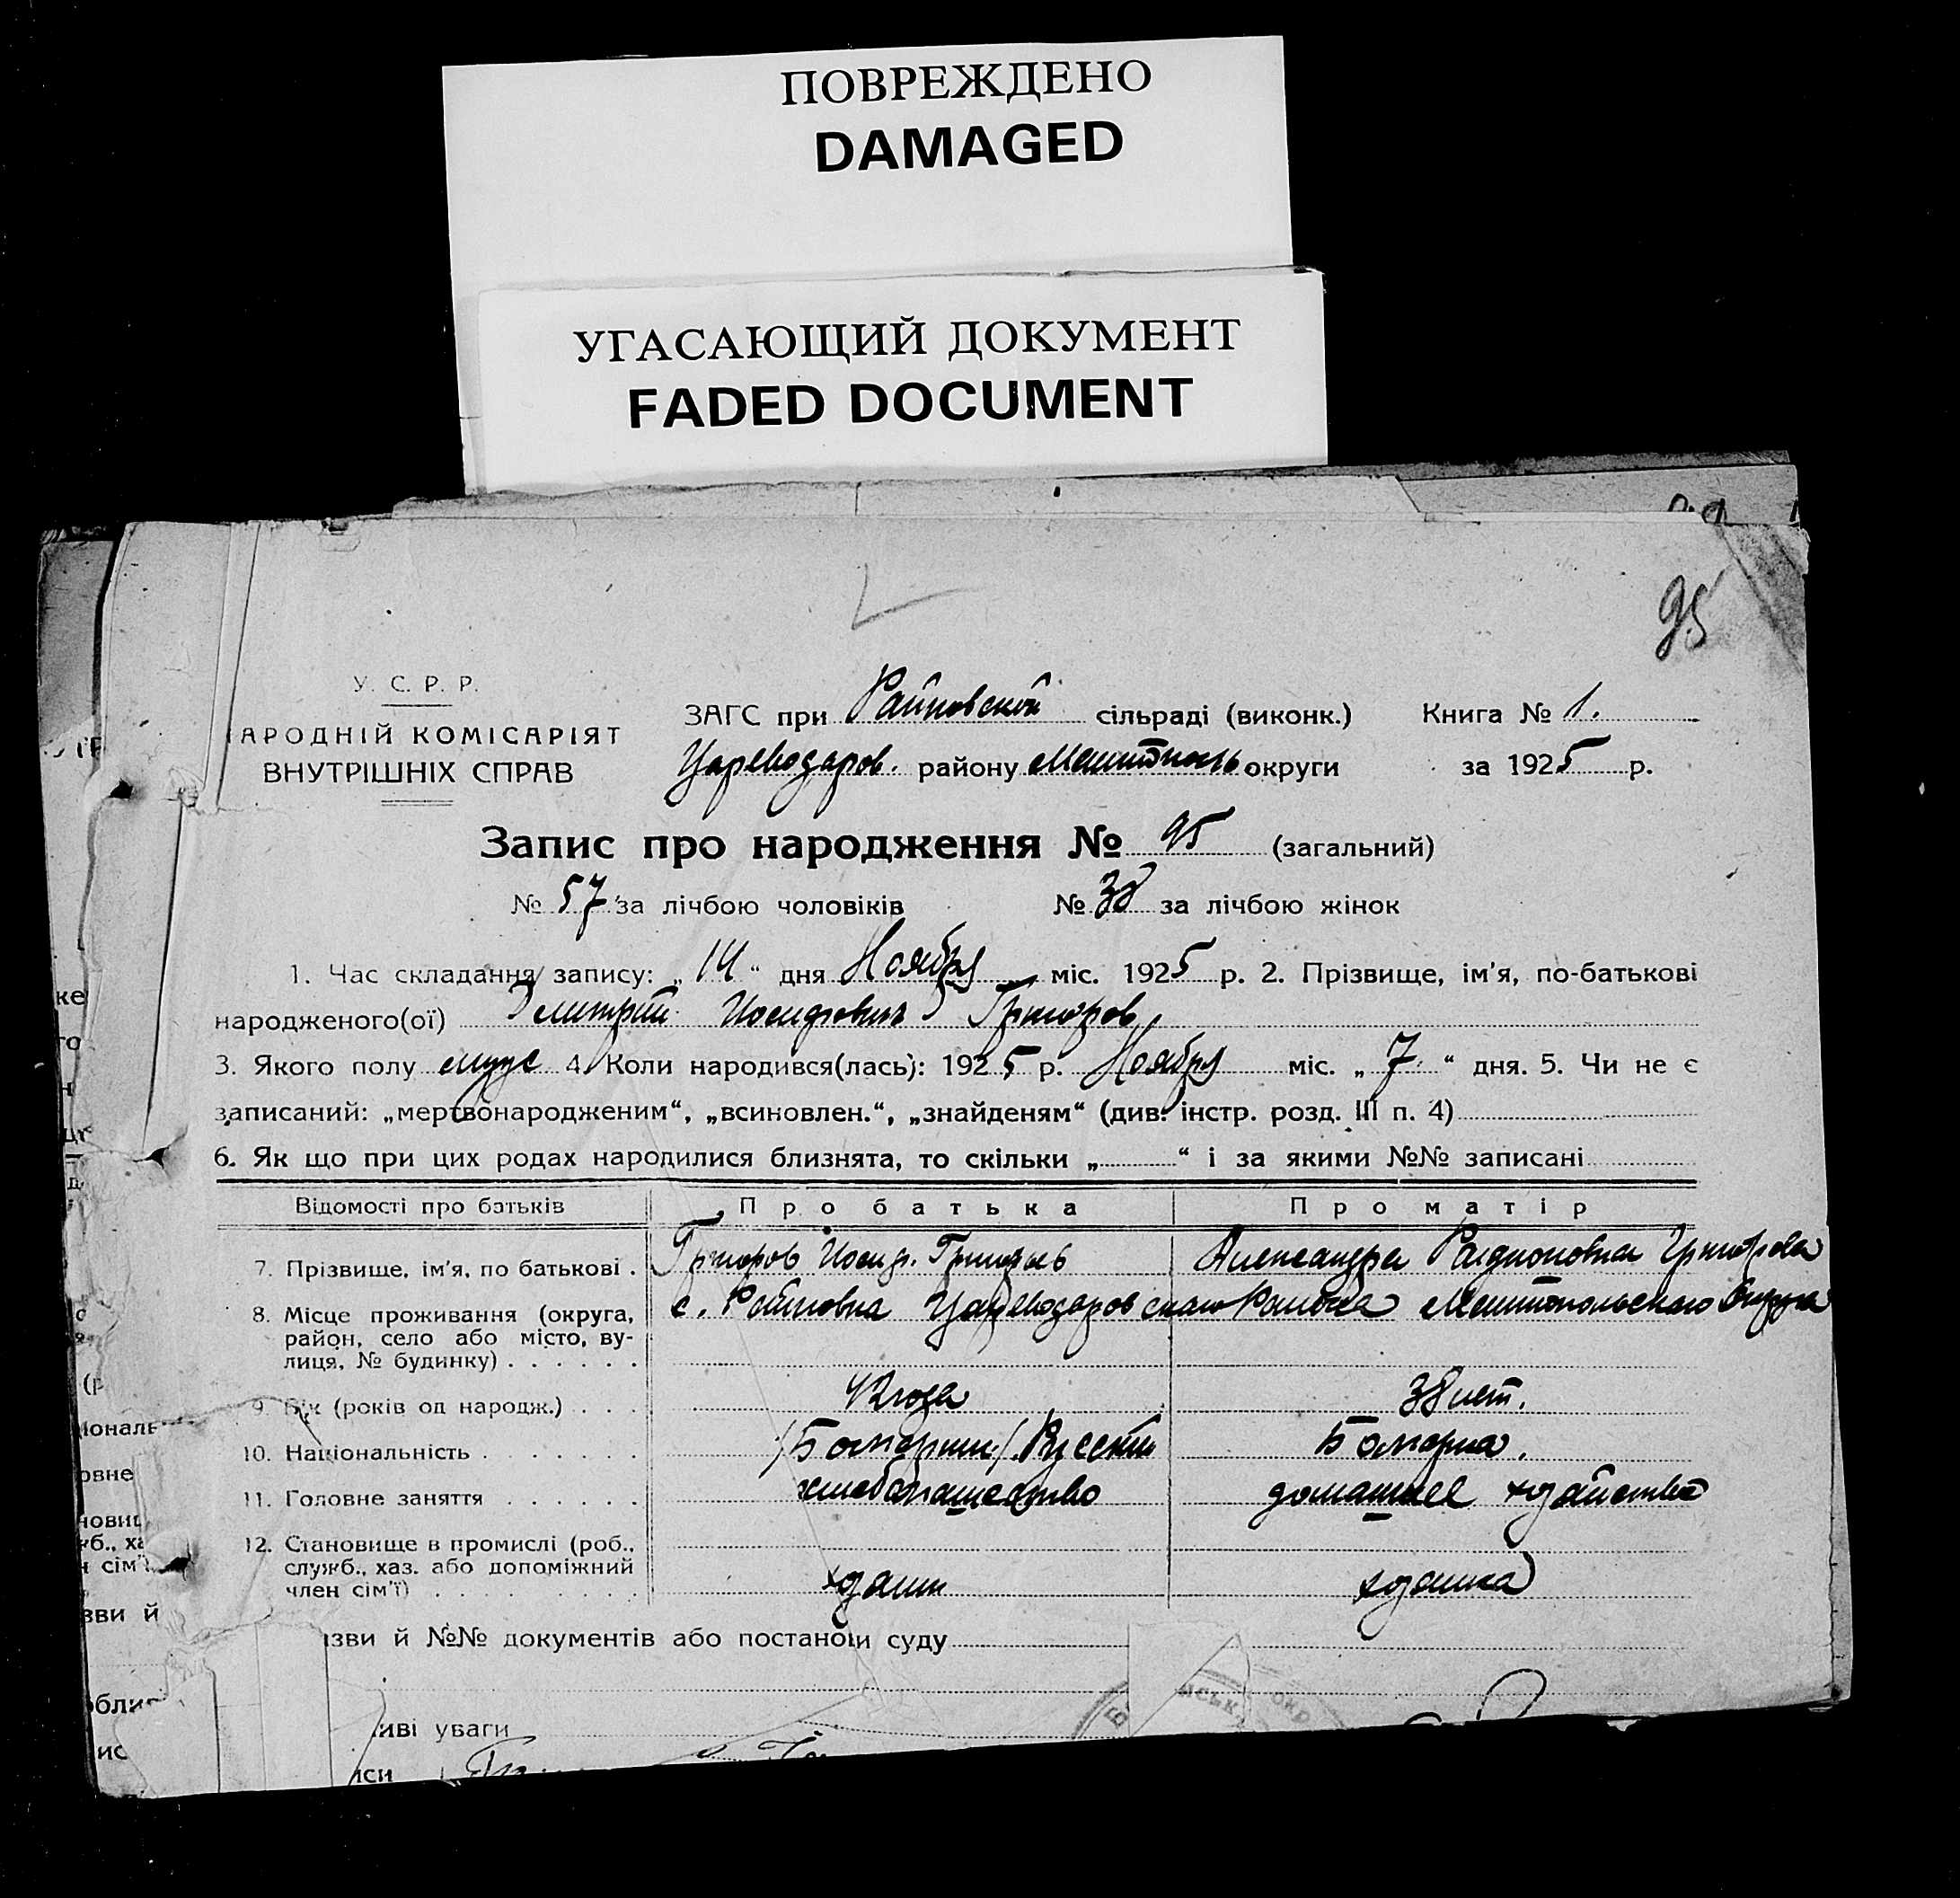 ПОВРЕЖДЕНО
DAMAGED
УГАСАЮЩИЙ ДОКУМЕНТ
FADED DOCUMENT
95
У. С. Р. Р.
АРОДНІЙ КОМІСАРІЯТ
ВНУТРІШНІХ СПРАВ
ЗАГС при Райновской сільраді (виконк.) Книга № 1.
Цареводаров. району округи за 1925 р.
Запис про народження № 95 (загальний)
№ 57 за лічбою чоловіків № 38 за лічбою жінок
1. Час складання запису: „14“ дня Ноября міс. 1925 р. 2. Прізвище, ім'я, по-батькові
народженого(ої) Дмитрий Иосифович Григоров
3. Якого полу муж 4. Коли народився(лась): 1925 р. Ноября міс. „7“ дня. 5. Чи не є
записаний: „мертвонародженим“, „всиновлен.“, „знайденям“ (див. інстр. розд. III п. 4)
6. Як що при цих родах народилися близнята, то скільки „ “ і за якими №№ записані
Відомості про батьків Про батька Про матір
7. Прізвище, ім'я, по батькові . Григоров Иосиф. Александра Родионовна Григорова
8. Місце проживання (округа, с. Райновка Цареводаровскаго Района Мелитопольскаго Округа
район, село або місто, ву-
лиця, № будинку)
9. Вік (років од народж.) 42 года 38 лет.
10. Національність /Болгарин/ Русский Болгарка.
11. Головне заняття хлебопашество домашнее хозяйство
12. Становище в промислі (роб.,
служб., хаз. або допоміжний
член сім'ї) хозяин хозяйка
зви й №№ документів або постанови суду
иві уваги
иси